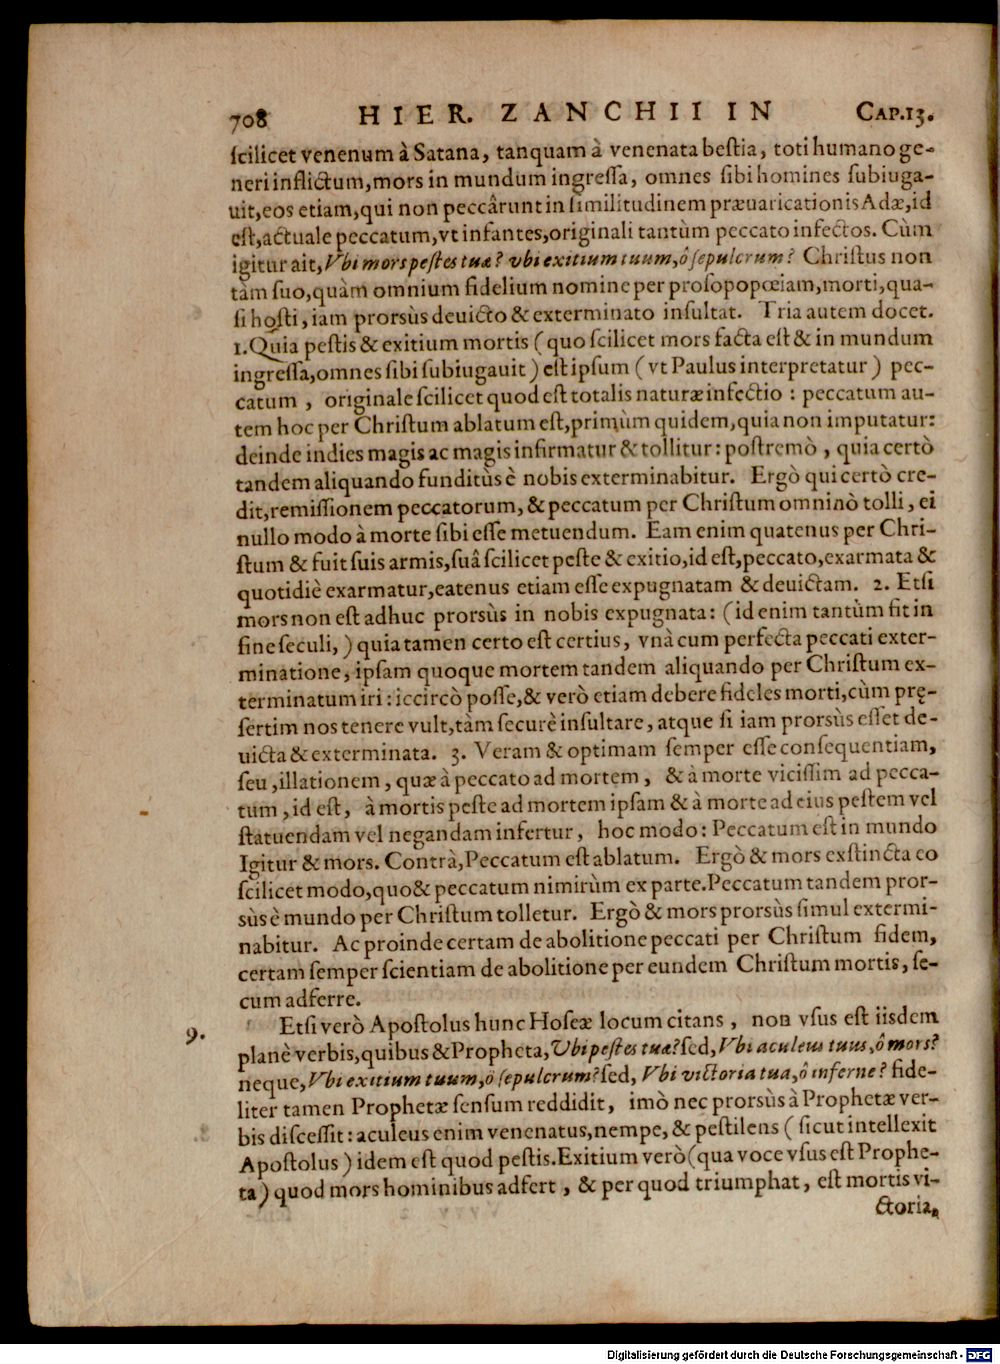 708 HIER. ZANCHII IN CAP.13.
ſcilicet venenum à Satana, tanquam à venenata beſtia, toti humano ge-
neri inflictum,mors in mundum ingreſſa, omnes ſibi homines ſubiuga-
uit,eos etiam,qui non peccârunt in ſimilitudinem præuaricationis Adæ,id
eſt,actuale peccatum,vt infantes,originali tantùm peccato infectos. Cùm
igitur ait,Vbi mors peſtes tuæ? vbi exitium tuum,ô ſepulcrum? Chriſtus non
tàm ſuo,quàm omnium fidelium nomine per proſopopœiam,morti,qua-
ſi hoſti, iam prorsùs deuicto & exterminato inſultat. Tria autem docet.
1.Quia peſtis & exitium mortis ( quo ſcilicet mors facta eſt & in mundum
ingreſſa,omnes ſibi ſubiugauit ) eſt ipſum ( vt Paulus interpretatur ) pec-
catum , originale ſcilicet quod eſt totalis naturæ infectio : peccatum au-
tem hoc per Chriſtum ablatum eſt,primùm quidem,quia non imputatur:
deinde indies magis ac magis infirmatur & tollitur: poſtremò , quia certò
tandem aliquando funditùs è nobis exterminabitur. Ergò qui certò cre-
dit,remiſſionem peccatorum, & peccatum per Chriſtum omninò tolli, ei
nullo modo à morte ſibi eſſe metuendum. Eam enim quatenus per Chri-
ſtum & fuit ſuis armis,ſuâ ſcilicet peſte & exitio,id eſt,peccato,exarmata &
quotidiè exarmatur,eatenus etiam eſſe expugnatam & deuictam. 2. Etſi
mors non eſt adhuc prorsùs in nobis expugnata: ( id enim tantùm fit in
fine ſeculi, ) quia tamen certo eſt certius, vnà cum perfecta peccati exter-
minatione, ipſam quoque mortem tandem aliquando per Chriſtum ex-
terminatum iri : iccircò poſſe,& verò etiam debere fideles morti,cùm prę-
ſertim nos tenere vult,tàm ſecurè inſultare, atque ſi iam prorsùs eſſet de-
uicta & exterminata. 3. Veram & optimam ſemper eſſe conſequentiam,
ſeu ,illationem , quæ à peccato ad mortem , & à morte viciſſim ad pecca-
tum , id eſt, à mortis peſte ad mortem ipſam & à morte ad eius peſtem vel
ſtatuendam vel negandam infertur, hoc modo: Peccatum eſt in mundo
Igitur & mors. Contrà,Peccatum eſt ablatum. Ergò & mors exſtincta eo
ſcilicet modo,quo& peccatum nimirùm ex parte.Peccatum tandem pror-
sùs è mundo per Chriſtum tolletur. Ergò & mors prorsùs ſimul extermi-
nabitur. Ac proinde certam de abolitione peccati per Chriſtum fidem,
certam ſemper ſcientiam de abolitione per eundem Chriſtum mortis, ſe-
cum adferre.
9. Etſi verò Apoſtolus hunc Hoſeæ locum citans , non vſus eſt iiſdem
planè verbis,quibus & Propheta,Vbi peſtes tuæ? ſed, Vbi aculeus tuus,ô mors?
neque,Vbi exitium tuum,ô ſepulcrum? ſed, Vbi victoria tua,ô inferne? fide-
liter tamen Prophetæ ſenſum reddidit, imò nec prorsùs à Prophetæ ver-
bis diſceſſit : aculeus enim venenatus,nempe, & peſtilens ( ſicut intellexit
Apoſtolus ) idem eſt quod peſtis.Exitium verò(qua voce vſus eſt Prophe-
ta) quod mors hominibus adfert, & per quod triumphat, eſt mortis vi-
ctoria,
Digitalisierung gefördert durch die Deutsche Forschungsgemeinschaft - DFG